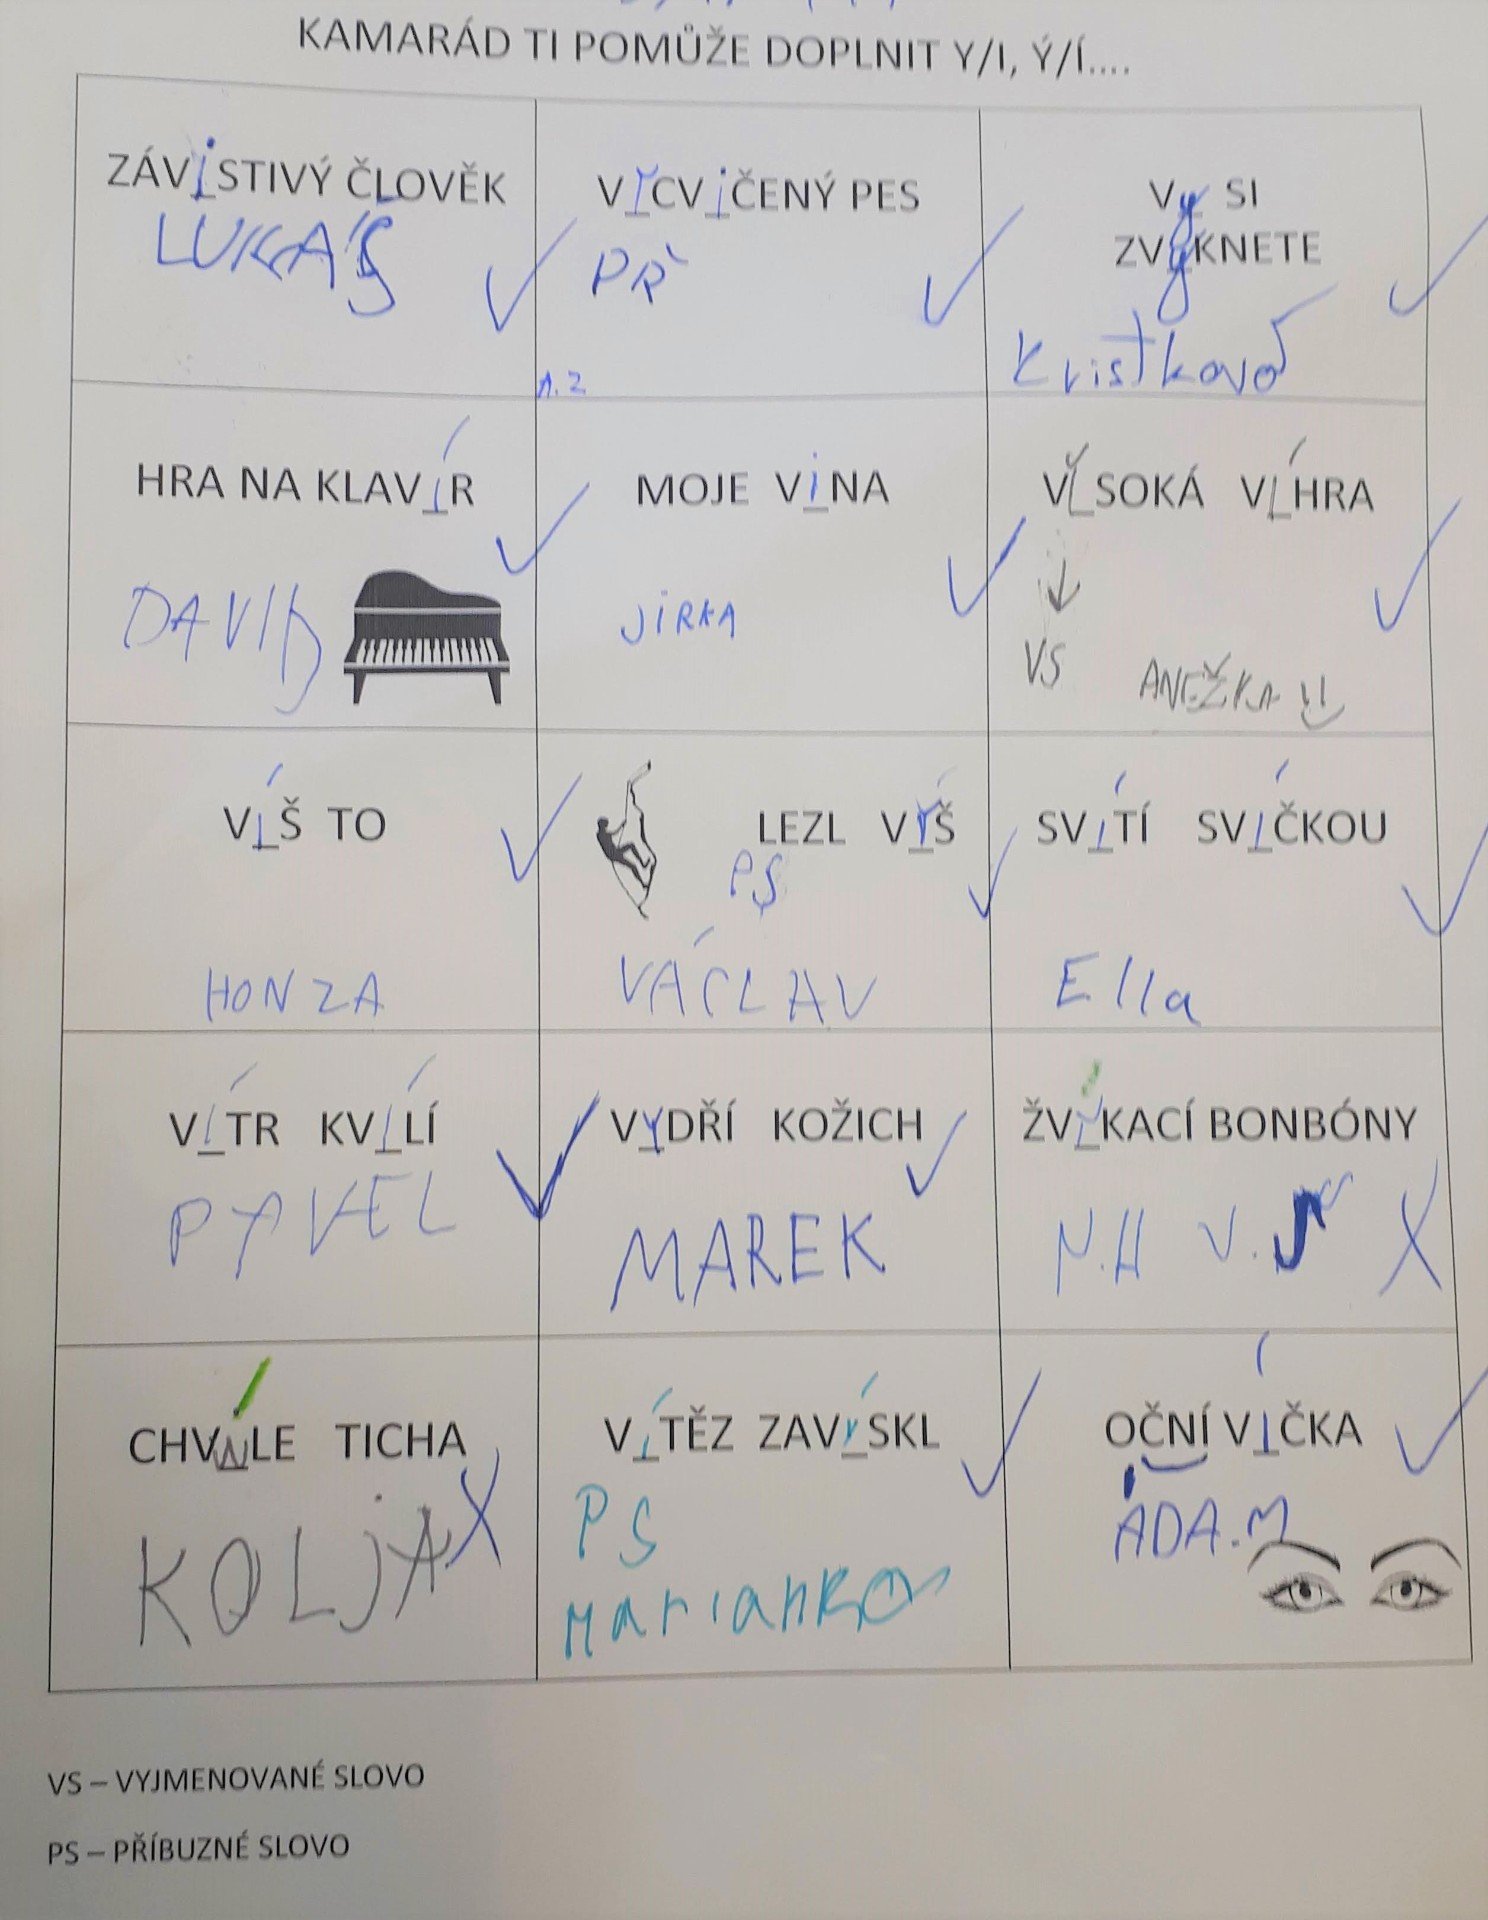 KAMARÁD TI POMŮŽE DOPLNIT Y/I, Ý/Í....
ZÁVISTIVÝ ČLOVĚK
LUKÁŠ
VYCVIČENÝ PES
PŘ
A.Z
VY SI
ZVYKNETE
HRA NA KLAVÍR
DAVID
MOJE VINA
JIRKA
VYSOKÁ VÝHRA
VS
ANEŽKA
VÍŠ TO
HONZA
LEZL VÝŠ
PS
VÁCLAV
SVÍTÍ SVÍČKOU
Ella
VÍTR KVÍLÍ
PAVEL
VYDŘÍ KOŽICH
MAREK
ŽVÝKACÍ BONBÓNY
N.H V.
CHVÍLE TICHA
KOLJA
VÍTĚZ ZAVÝSKL
PS
OČNÍ VÍČKA
ADA.M
VS – VYJMENOVANÉ SLOVO
PS – PŘÍBUZNÉ SLOVO